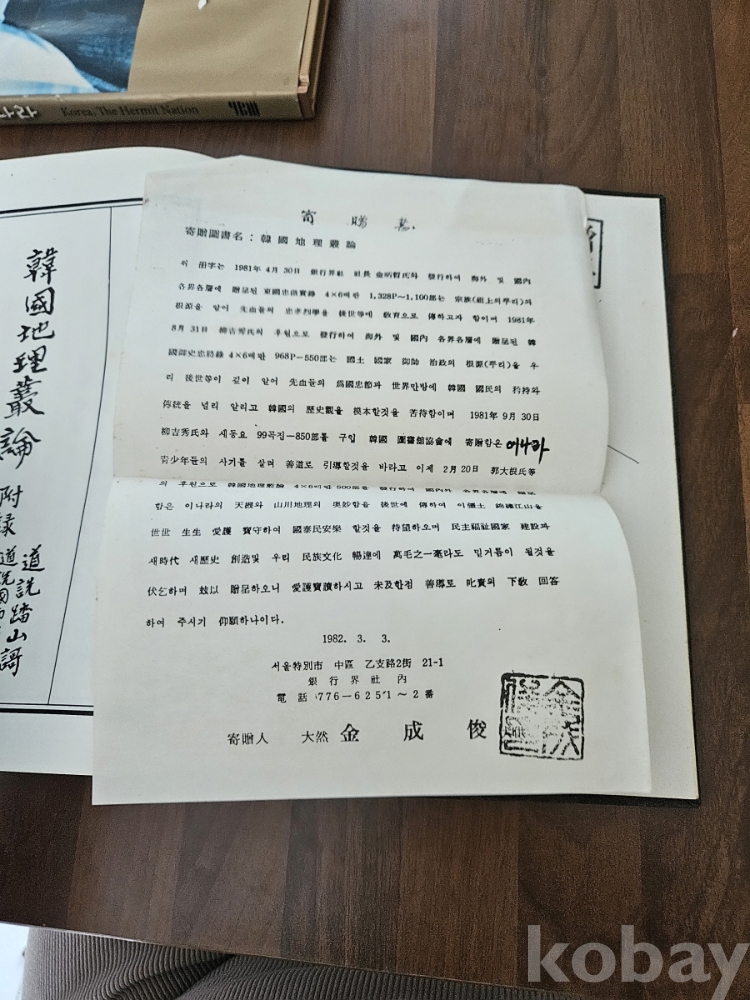 나라 Korea, The Hermit Nation
韓國地理叢論 附録
道詵踏山謌
寄贈
寄贈圖書名 : 韓國地理叢論
1981年 4月 30日 銀行界社 社長 發行하여 海外 및 國內
各界各層에 贈呈된 4×6배판 1,328P~1,100部는 宗族(祖上의뿌리)의
根源을 알아 先血들의 忠孝烈學을 後世等에 敎育으로 傳하고자 함이며 1981年
8月 31日 柳吉秀氏의 후원으로 發行하여 海外 및 國內 各界各層에 贈呈된 韓
4×6배판 968P—550部는 國土 國家 御師 治政의 根源(뿌리)을 우
리 後世等이 깊이 알어 先血들의 爲國忠節과 世界만방에 韓國 國民의 矜持와
傳統을 널리 알리고 韓國의 歷史觀을 模本할것을 苦待함이며 1981年 9月 30日
柳吉秀氏와 새동요 99곡집—850部를 구입 韓國 圖書館協會에 寄贈함은 이나라
靑少年들의 사기를 살려 善道로 引導할것을 바라고 이제 2月 20日 郭大根氏等
의 후원으로 韓國地理叢論 4×6배판 500部를 發行하여
함은 이나라의 天惠와 山川地理의 奧妙함을 後世에 傳하여 이領土 錦繡江山을
世世 生生 愛護 寶守하여 國泰民安樂 할것을 待望하오며 民主福祉國家 建設과
새時代 새歷史 創造및 우리 民族文化 暢達에 萬毛之一毫라도 밑거름이 될것을
伏乞하며 玆以 贈呈하오니 愛護寶讀하시고 未及한점 善導로 叱責의 下敎 回答
하여 주시기 仰願하나이다.
1982. 3. 3.
서울特別市 中區 乙支路2街 21-1
銀行界社內
電話 776—6251~2番
寄贈人 大然 金成俊
kobay